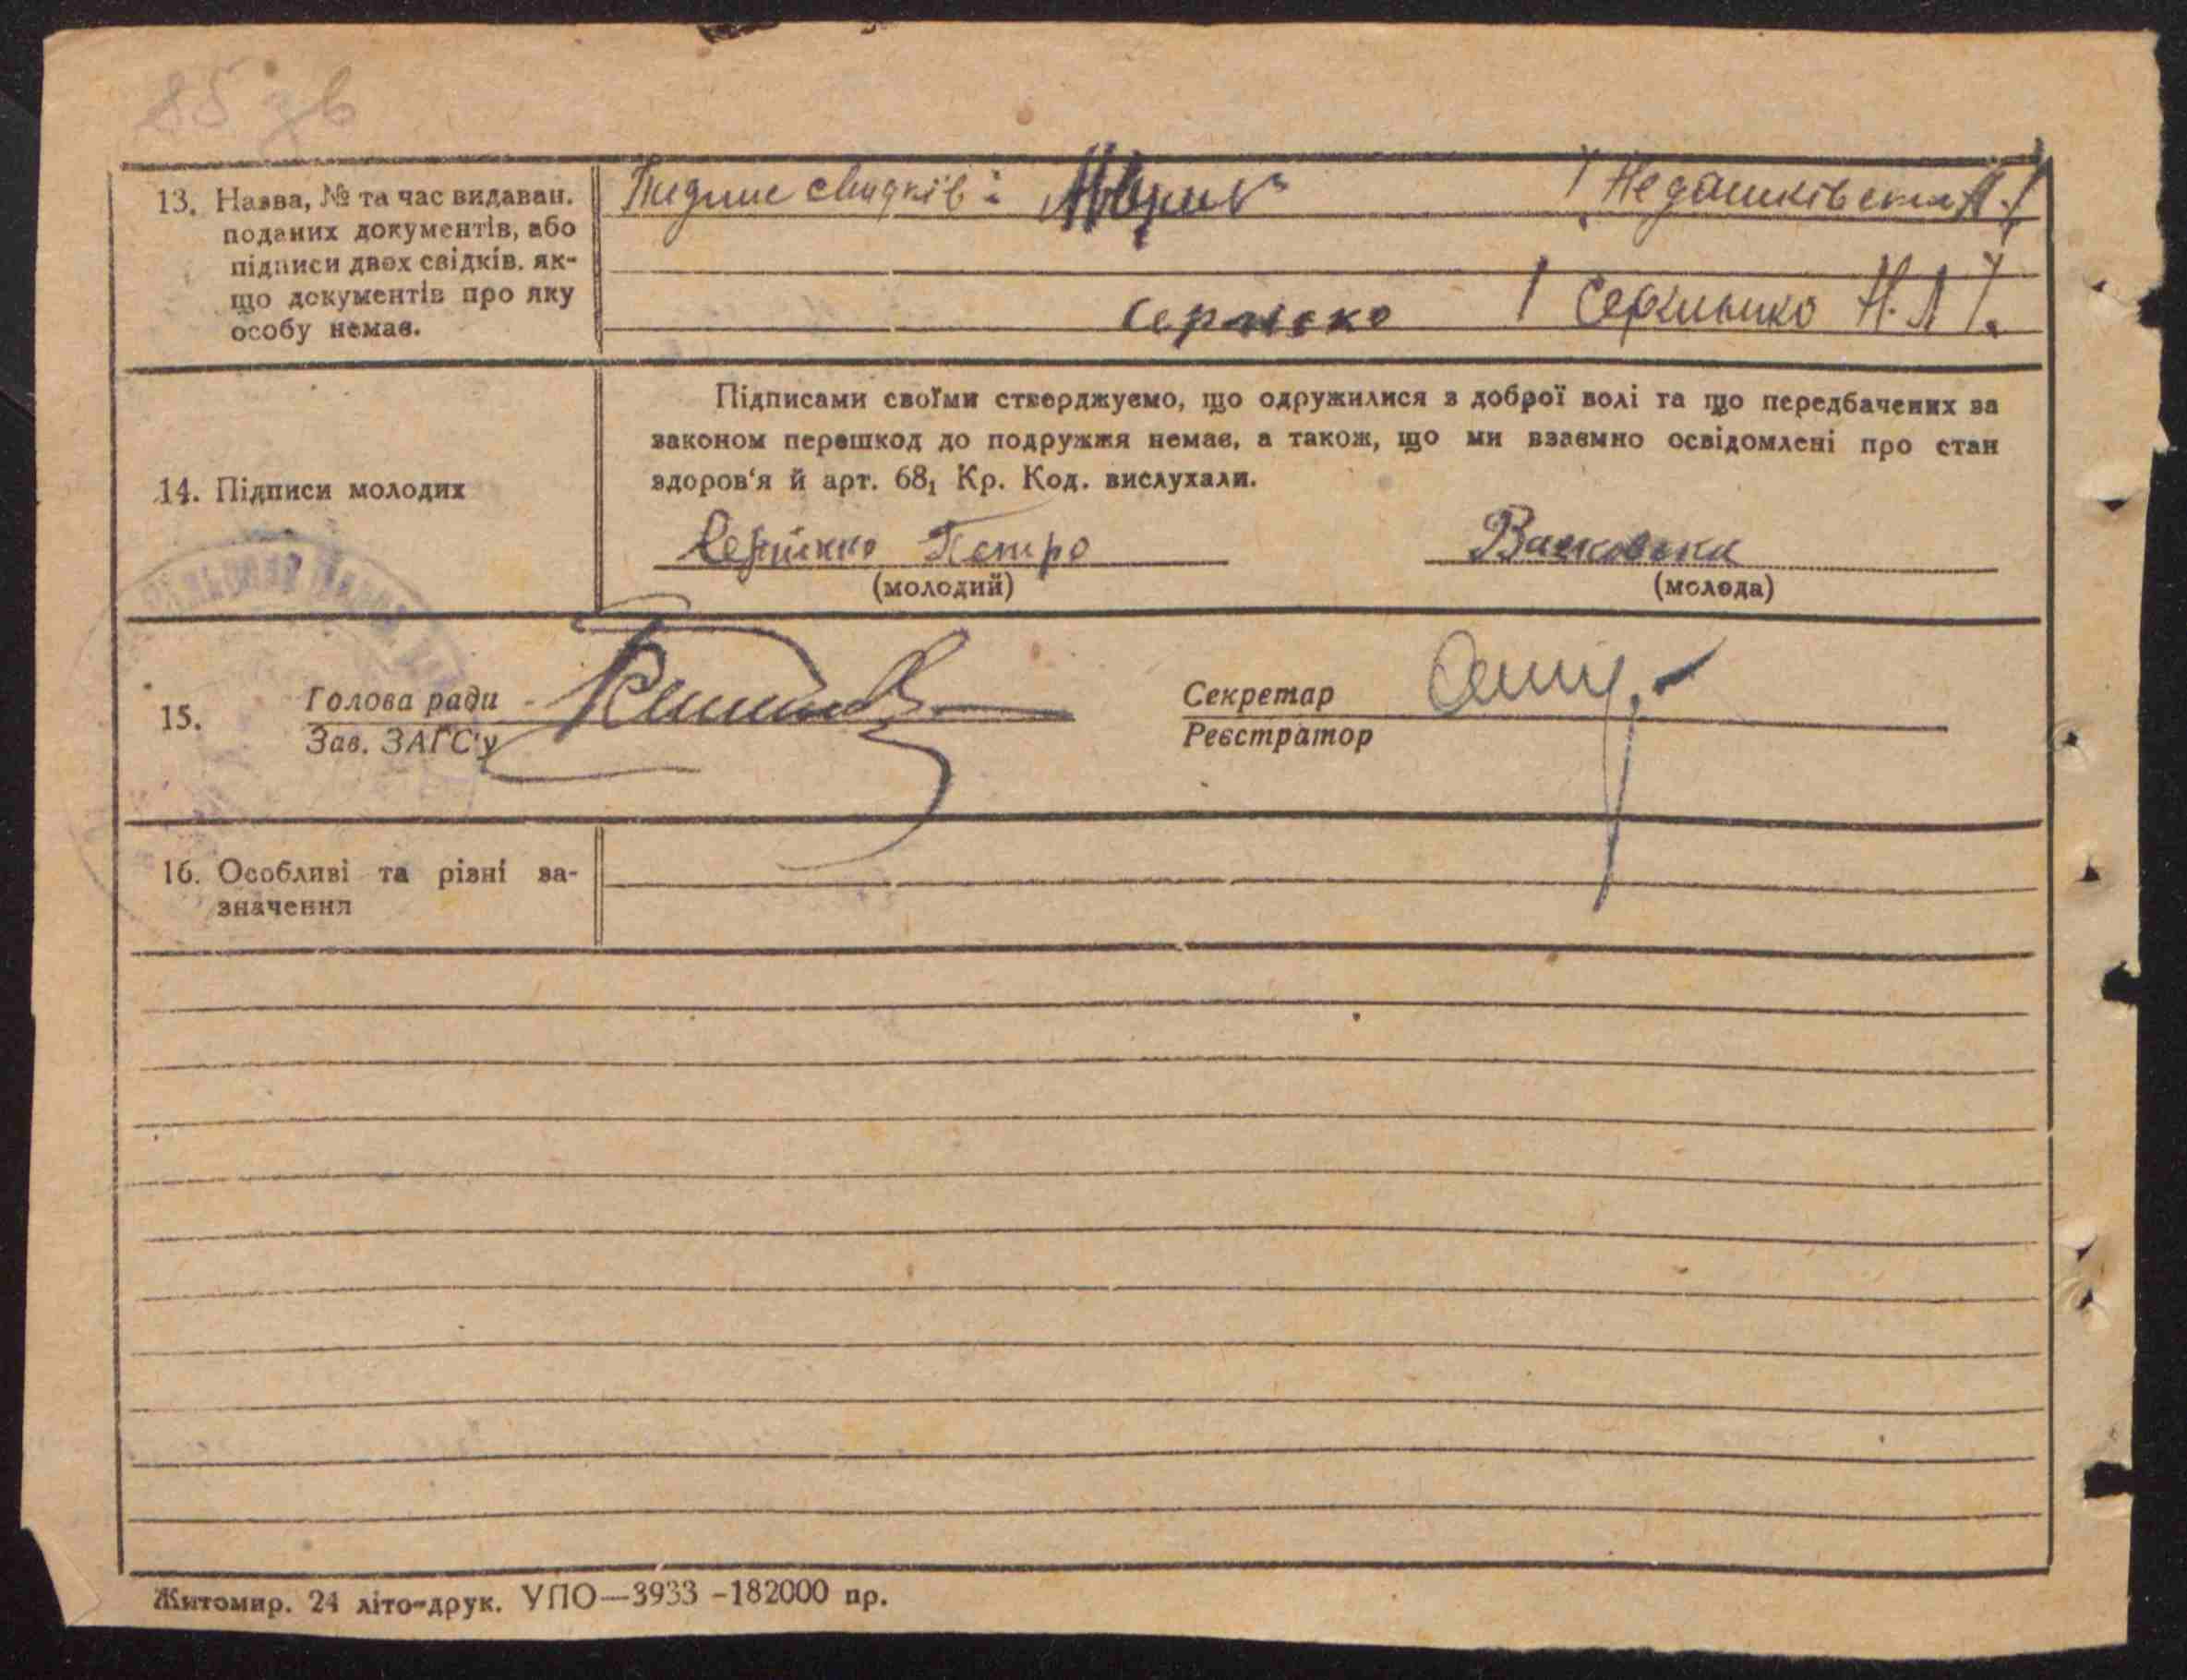 85 зв
13. Назва, № та час видаван.
поданих документів, або
підписи двох свідків, як-
що документів про яку
особу немає.
Підпис свидків:
/ Недашківська
/ Сергієнко Н. Л /.
14. Підписи молодих
Підписами своїми стверджуємо, що одружилися з доброї волі та що передбачених за
законом перешкод до подружжя немає, а також, що ми взаємно освідомлені про стан
здоров'я й арт. 68₁ Кр. Код. вислухали.
Петро
(молодий) (молода)
15. Голова ради Секретар
Зав. ЗАГС'у Реєстратор
16. Особливі та різні за-
значення
Житомир. 24 літо-друк. УПО—3933 -182000 пр.